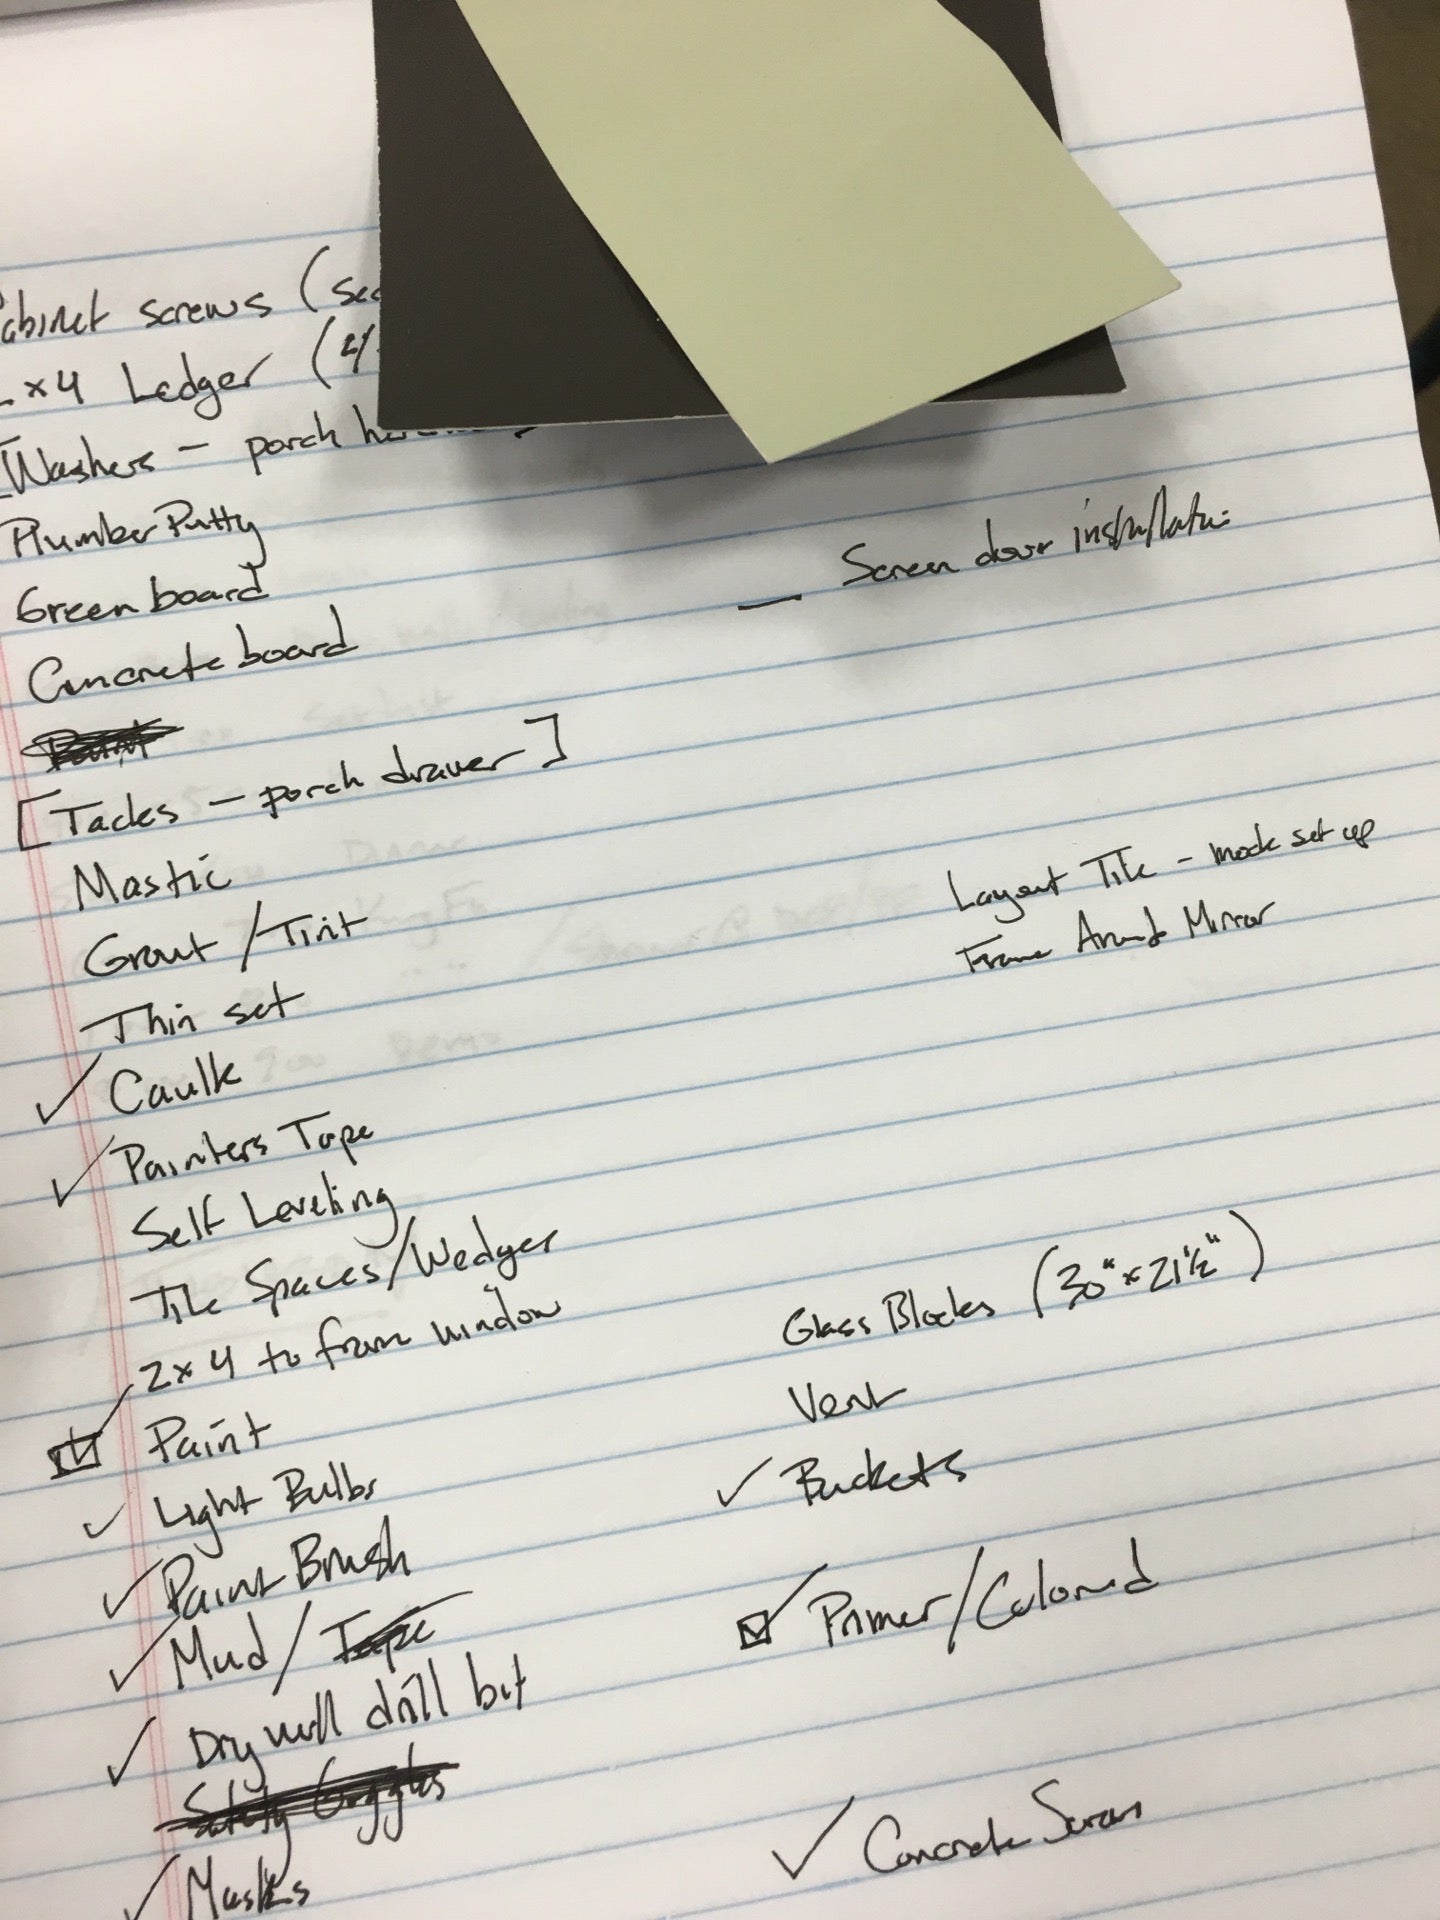 Cabinet screws (sec
2x4 Ledger (4
[Washers - porch
Plumber Putty
Green board
Screen door
Concrete board
Paint
[Tacks - porch drawer]
Mastic
Layout Tile - mock set up
Grout/Tint
Frame Around Mirror
Thin set
✓ Caulk
✓ Painters Tape
Self Leveling
Tile Spaces/Wedger
Glass Blocks (30" x 21½")
2x4 to fram window
Vent
☑ Paint
✓ Buckets
✓ Light Bulbs
✓ Paint Brush
☑ Primer/Colored
✓ Mud/Tape
✓ Drywall drill bit
Safety Goggles
✓ Concrete
✓ Masks